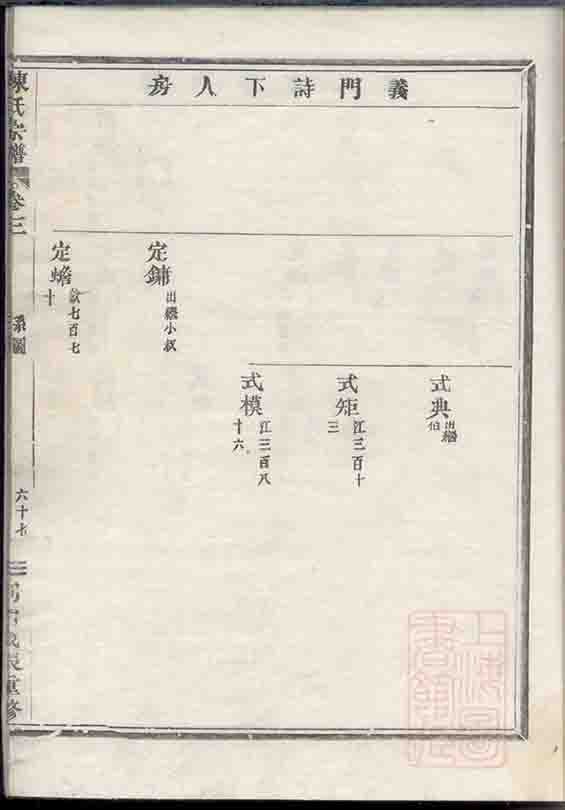 義門詩下人房
式典 出繼伯
式矩 江三百十三
式模 江三百八十六
定鏞 出繼小叔
定蟾 七百七十
陳氏宗譜
系圖
六十七
重修
上海圖書館藏